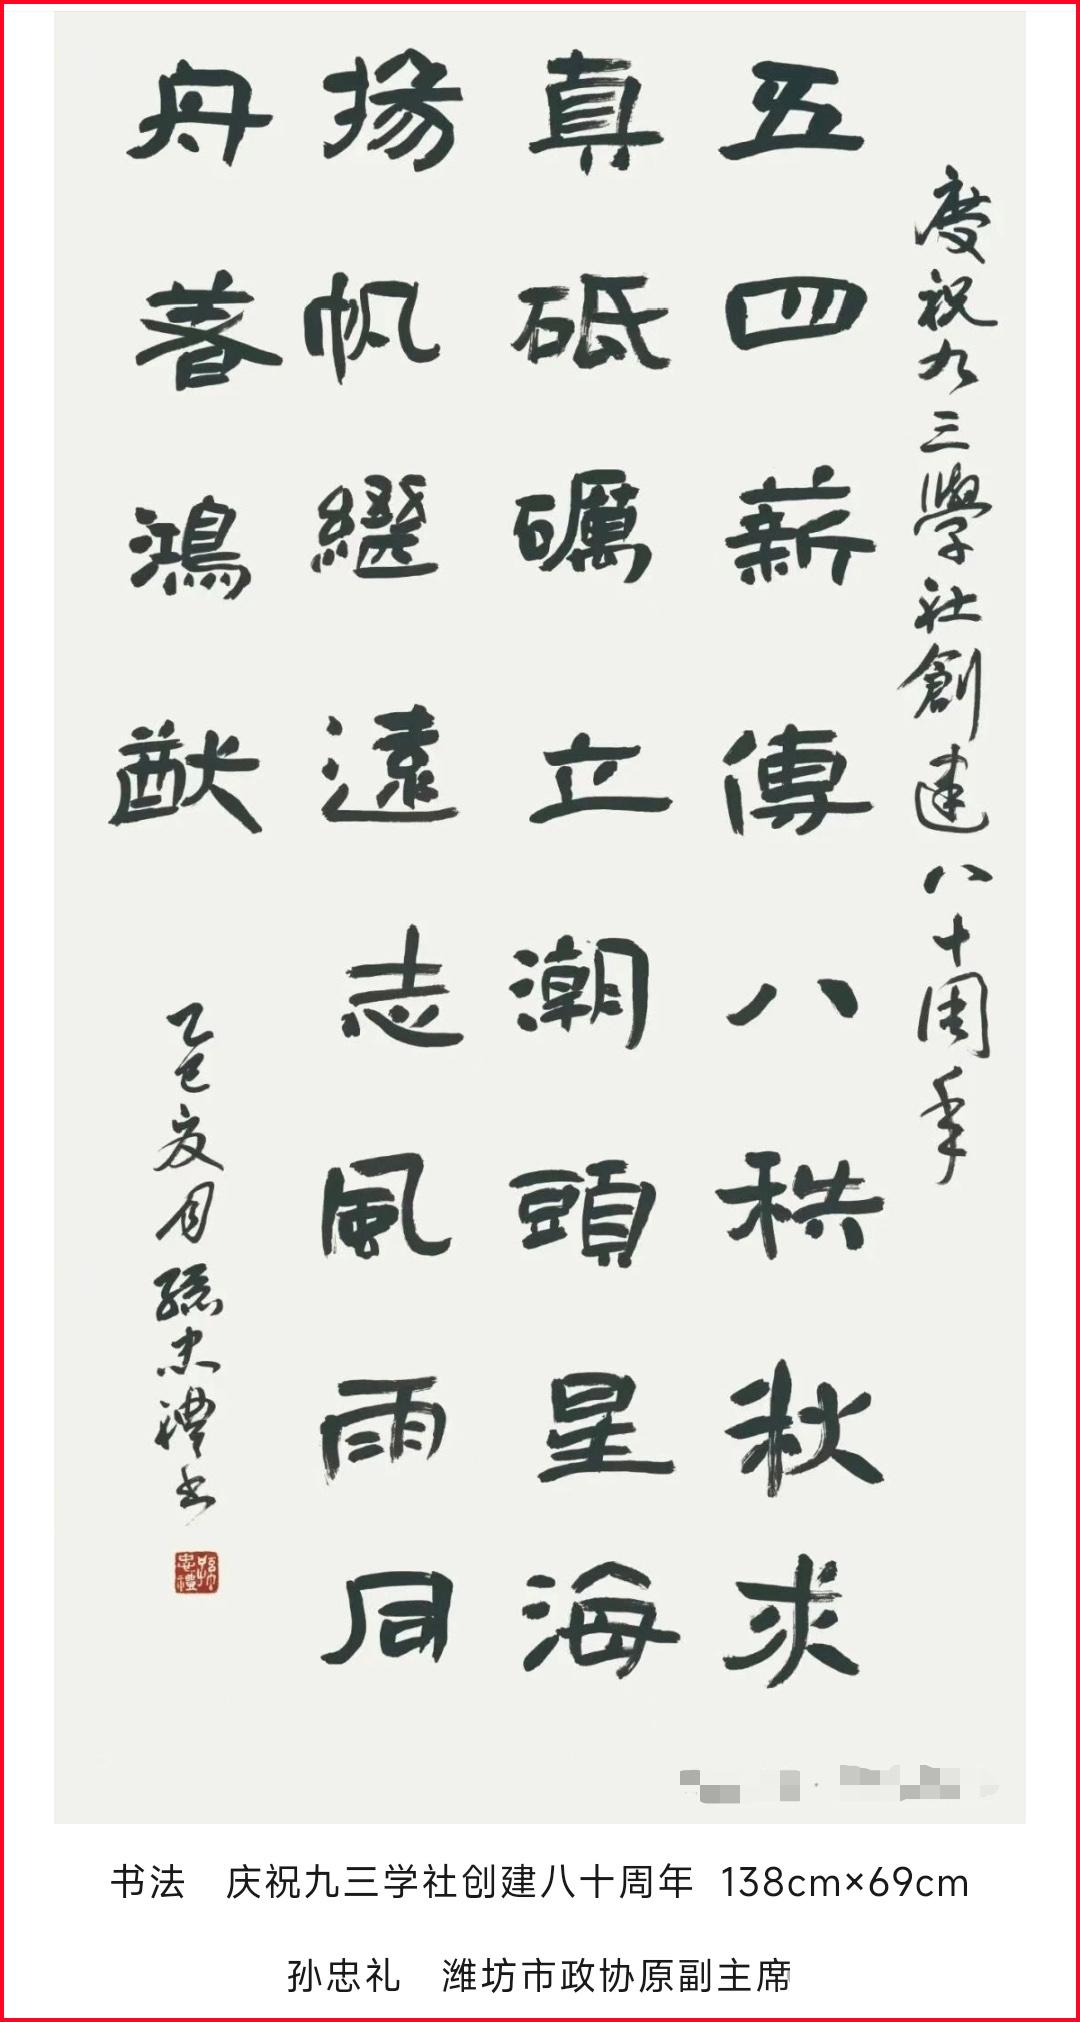 慶祝九三學社創建八十周年
五四薪傳八秩秋求
真砥礪立潮頭星海
揚帆繼遠志風雨同
舟春鴻猷
乙巳夏月孫忠禮書
孫忠禮
书法 庆祝九三学社创建八十周年 138cm×69cm
孙忠礼 潍坊市政协原副主席